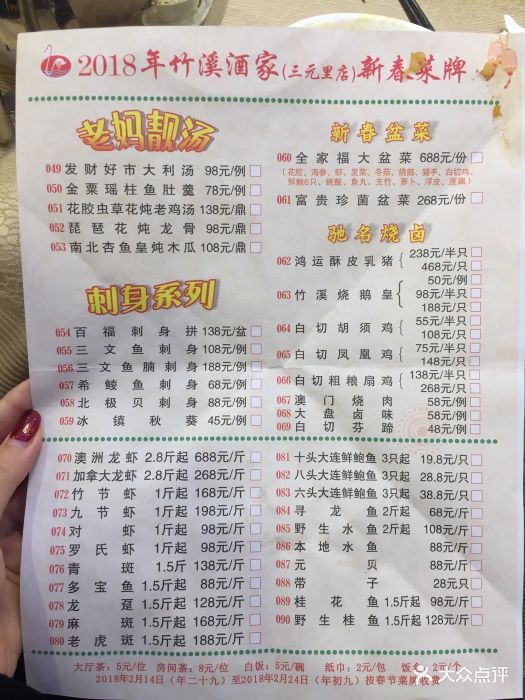 2018年竹溪酒家(三元里店)新春菜牌
老妈靓汤
049 发财好市大利汤 98元/例
050 金粟瑶柱鱼肚羹 78元/例
051 花胶虫草花炖老鸡汤 138元/鼎
052 琵琶花炖龙骨 98元/鼎
053 南北杏鱼皇炖木瓜 108元/鼎
刺身系列
054 百福刺身拼 138元/盆
055 三文鱼刺身 108元/例
056 三文鱼腩刺身 188元/例
057 希鲮鱼刺身 68元/例
058 北极贝刺身 88元/例
059 冰镇秋葵 45元/例
新春盆菜
060 全家福大盆菜 688元/份
(花胶、海参、虾、发菜、冬菇、烧鹅、猪手、白切鸡、
鲜鲍6只、蚝豉、鱼九、支竹、萝卜、浮皮、莲藕)
061 富贵珍菌盆菜 268元/份
驰名烧卤
062 鸿运酥皮乳猪 238元/半只
468元/只
063 竹溪烧鹅皇 50元/例
98元/半只
188元/只
064 白切胡须鸡 55元/半只
108元/只
065 白切凤凰鸡 75元/半只
148元/只
066 白切粗粮扇鸡 138元/半只
268元/只
067 澳门烧肉 58元/例
068 大盘卤味 58元/例
069 白切芬蹄 48元/例
070 澳洲龙虾 2.8斤起 688元/斤
071 加拿大龙虾 2.8斤起 268元/斤
072 竹节虾 1斤起 168元/斤
073 九节虾 1斤起 198元/斤
074 对虾 1斤起 98元/斤
075 罗氏虾 1斤起 98元/斤
076 青斑 1.5斤 138元/斤
077 多宝鱼 1.5斤起 88元/斤
078 龙趸 1.5斤起 128元/斤
079 麻斑 1.5斤起 168元/斤
080 老虎斑 1.5斤起 188元/斤
081 十头大连鲜鲍鱼 3只起 19.8元/只
082 八头大连鲜鲍鱼 3只起 28.8元/只
083 六头大连鲜鲍鱼 3只起 38.8元/只
084 寻龙鱼 2斤起 68元/斤
085 野生水鱼 2斤起 108元/斤
086 本地水鱼 88元/斤
087 元贝 88元/斤
088 带子 28元只
089 桂花鱼 1.5斤起 98元/斤
090 野生桂鱼 1.5斤起 128元/斤
大厅茶:5元/位 房间茶:8元/位 白饭:5元/碗 纸巾:2元/包 饭盒:2元/个
2018年2月14日(年二十九)至2018年2月24日(年初九)按春节菜牌收费
大众点评